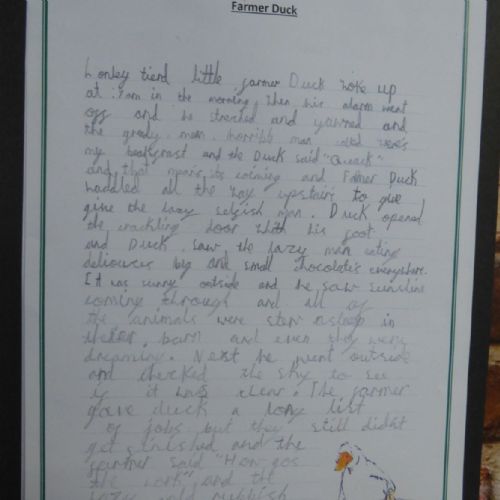 Farmer Duck
Lonley tierd little farmer Duck woke up
at in the morning. Then his alarm went
off and he streched and yawned and
the greedy, mean, horribb man
my and the Duck said "Quack"
and that means its coming and Farmer Duck
waddled all the way upstairs to give
give the lazy selfish man. Duck opened
the crackling door with his foot
and Duck saw the lazy man eating
big and small chocolates everywhere.
It was sunny outside and he saw sunshine
coming through and all of
the animals were asleep in
barn and even they were
dreaming. Next he went outside
and checked the sky to see
if it was clear. The farmer
gave duck a long list
of jobs but they still didn't
get finished and the
farmer said "How gos
the work" and the
lazy